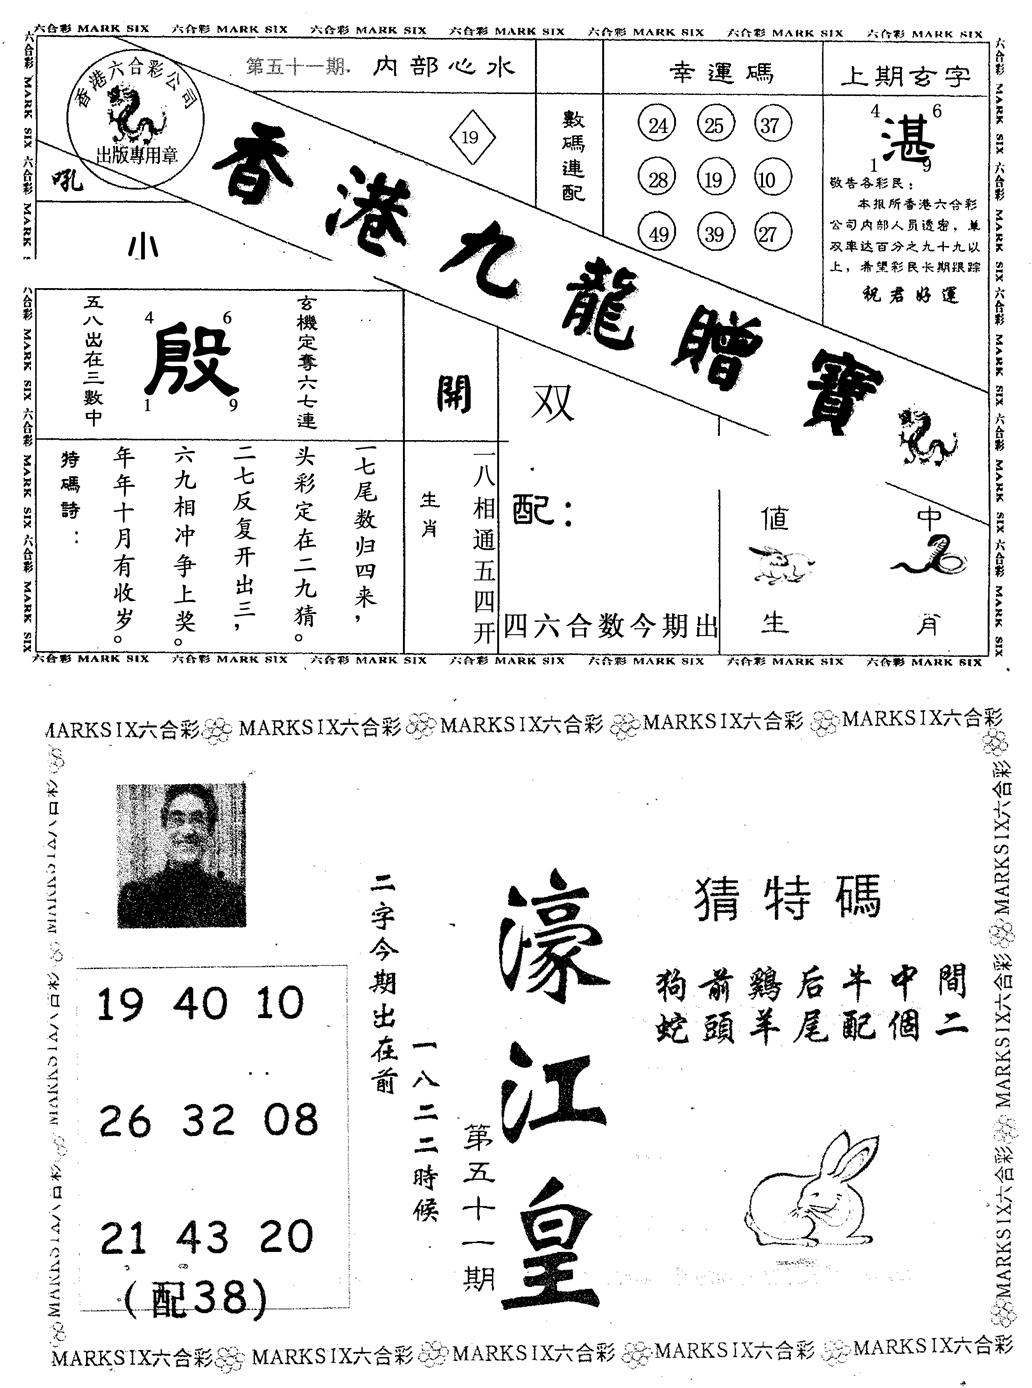 六合彩 MARK SIX 六合彩 MARK SIX 六合彩 MARK SIX 六合彩 MARK SIX 六合彩 MARK SIX 六合彩 MARK SIX 六合彩 MARK SIX
香港六合彩公司
出版專用章
第五十一期. 内部心水
香港九龍贈寶
19
數碼連配
幸運碼
24 25 37
28 19 10
49 39 27
上期玄字
4 6
湛
1 9
敬告各彩民：
本报所香港六合彩
公司内部人员透密，单
双率达百分之九十九以
上，希望彩民长期跟踪
祝君好運
吼
小
玄機定奪六七連
4 6
殷
1 9
五八出在三數中
開
双
特碼詩：
一七尾数归四来，
头彩定在二九猜。
二七反复开出三，
六九相冲争上奖。
年年十月有收岁。
生肖
一八相通五四开
配：
四六合数今期出
值 中
生 肖
六合彩 MARK SIX 六合彩 MARK SIX 六合彩 MARK SIX 六合彩 MARK SIX 六合彩 MARK SIX 六合彩 MARK SIX 六合彩 MARK SIX
MARKSIX六合彩 MARKSIX六合彩 MARKSIX六合彩 MARKSIX六合彩 MARKSIX六合彩
濠江皇
第五十一期
猜特碼
狗前鷄后牛中間
蛇頭羊尾配個二
二字今期出在前
一八二二時候
19 40 10
26 32 08
21 43 20
(配38)
MARKSIX六合彩 MARKSIX六合彩 MARKSIX六合彩 MARKSIX六合彩 MARKSIX六合彩